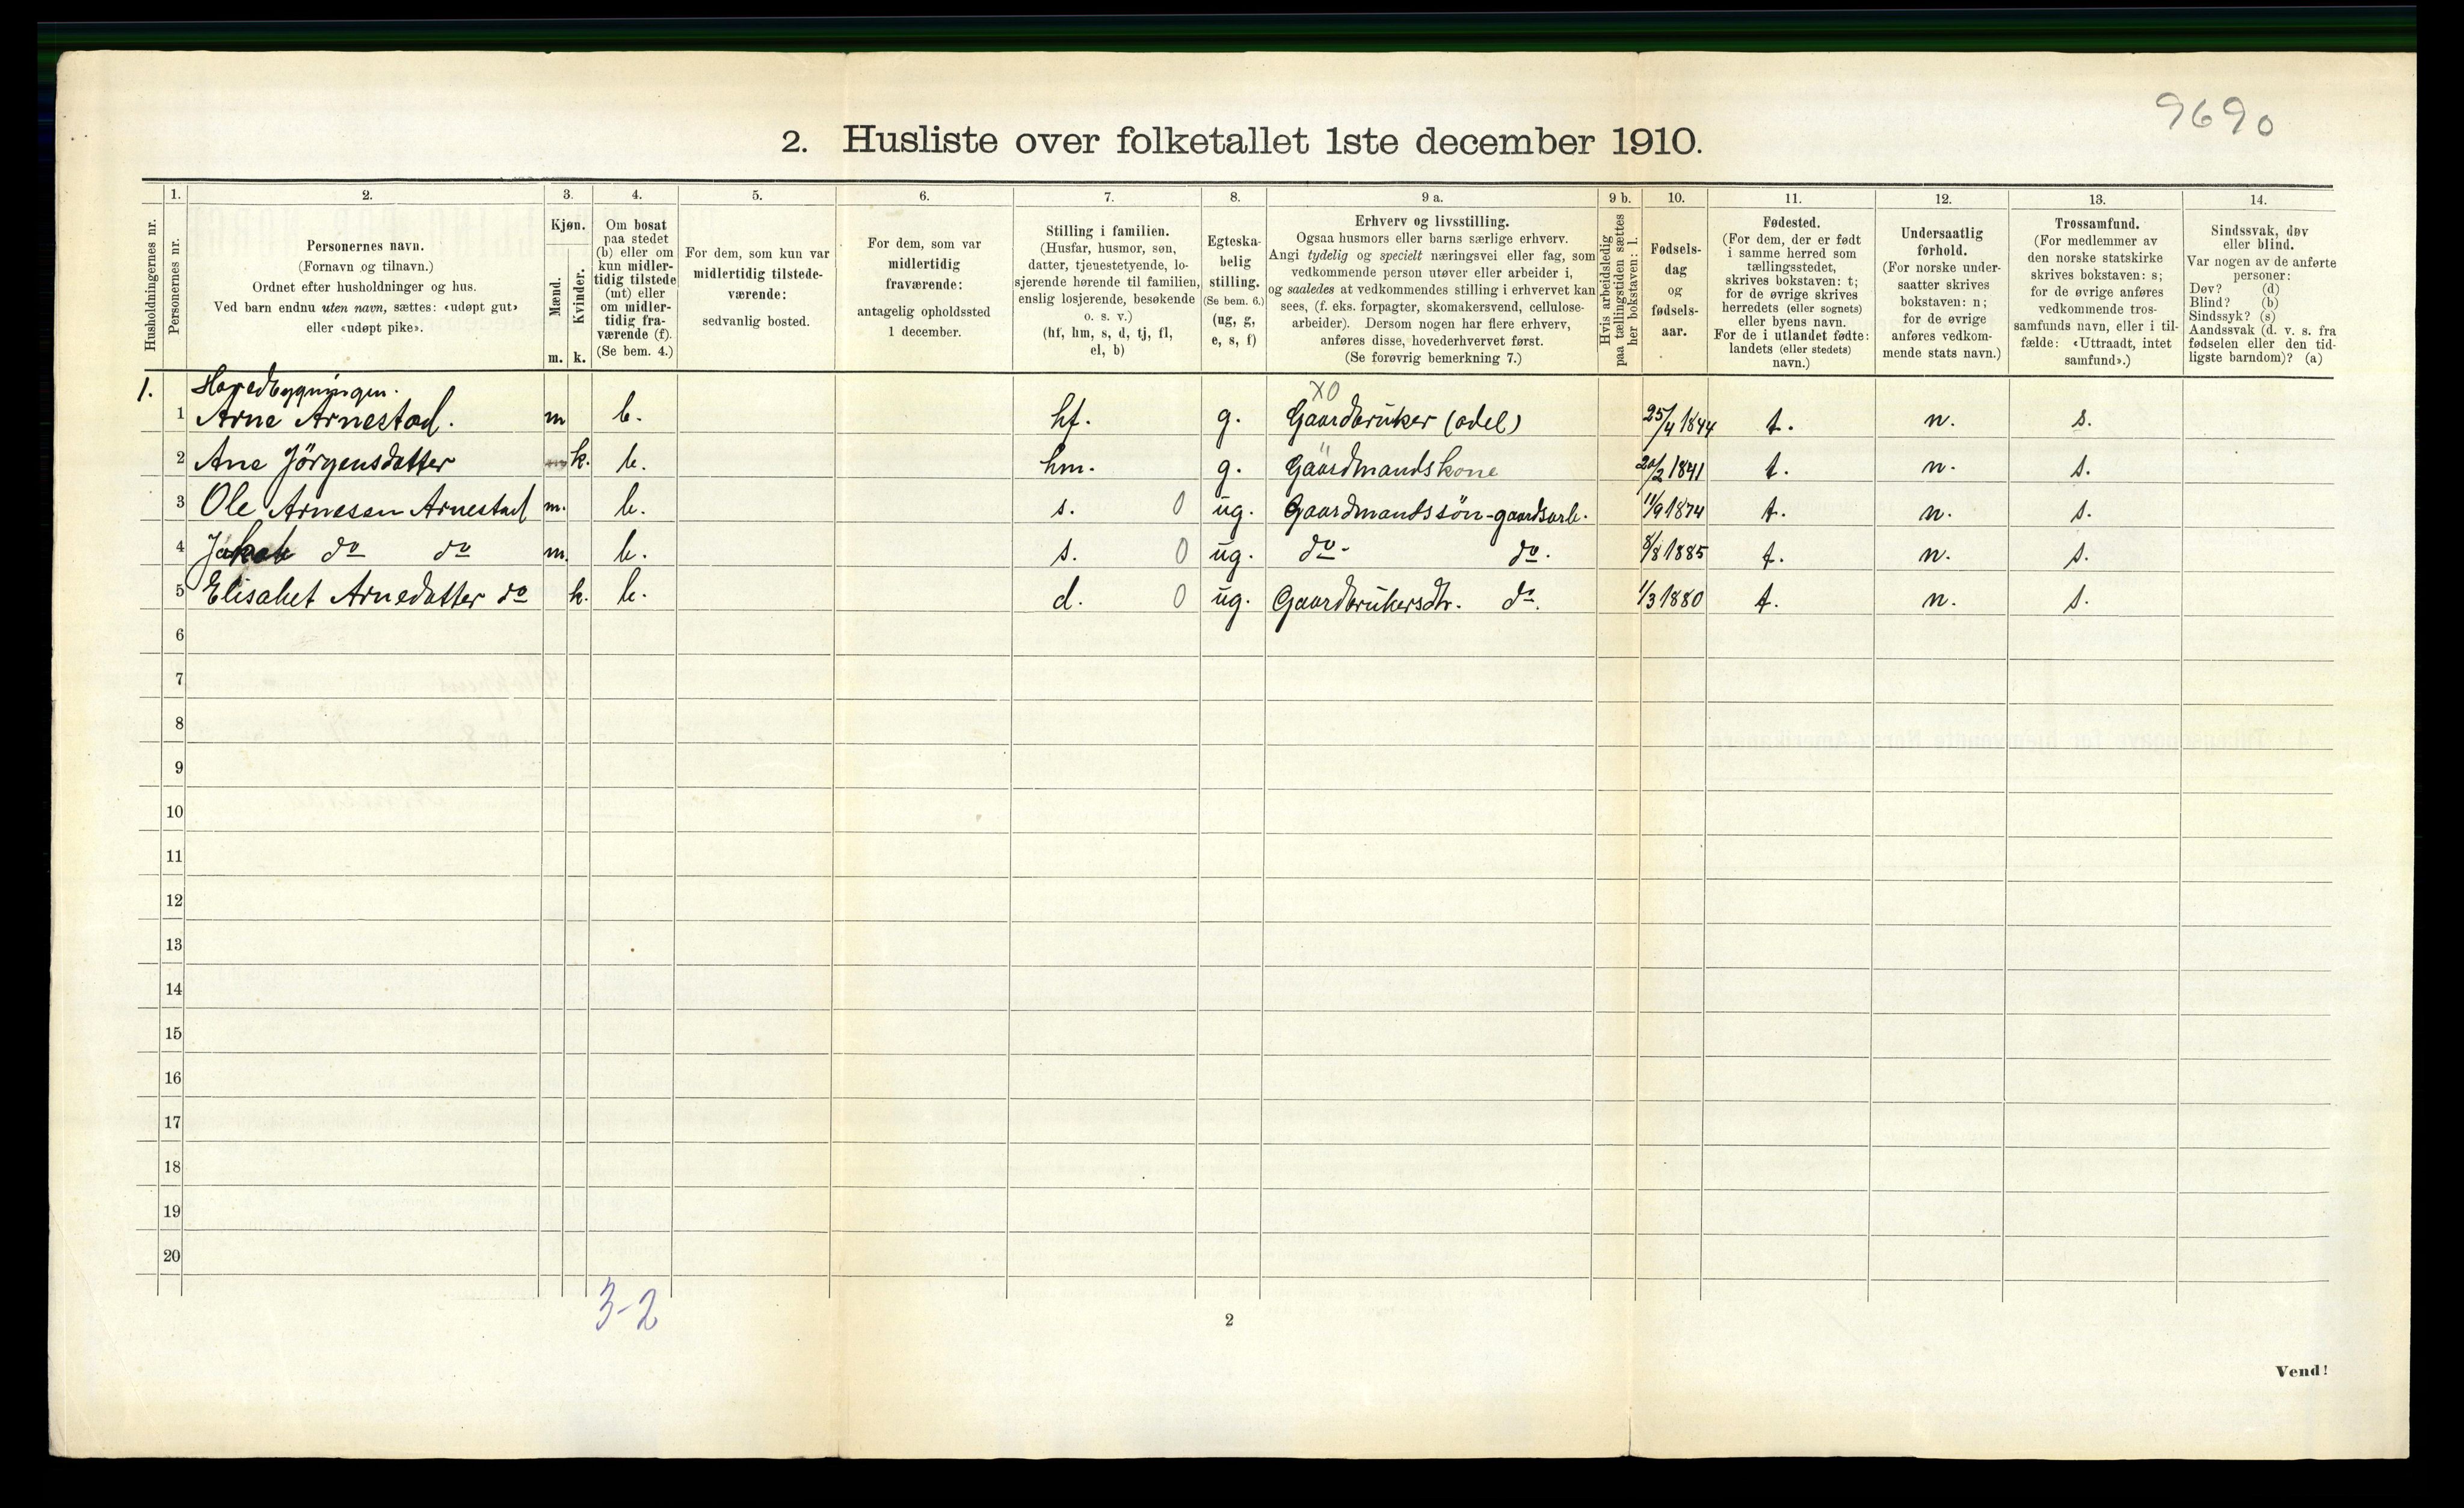 9690
2. Husliste over folketallet 1ste december 1910.
1. 2. 3. 4. 5. 6. 7. 8. 9 a. 9 b. 10. 11. 12. 13. 14.
Husholdningernes nr.
Personernes nr.
Personernes navn.
(Fornavn og tilnavn.)
Ordnet efter husholdninger og hus.
Ved barn endnu uten navn, sættes: «udøpt gut»
eller «udøpt pike».
Kjøn.
Mænd.
Kvinder.
m. k.
Om bosat
paa stedet
(b) eller om
kun midler-
tidig tilstede
(mt) eller
om midler-
tidig fra-
værende (f).
(Se bem. 4.)
For dem, som kun var
midlertidig tilstede-
værende:
sedvanlig bosted.
For dem, som var
midlertidig
fraværende:
antagelig opholdssted
1 december.
Stilling i familien.
(Husfar, husmor, søn,
datter, tjenestetyende, lo-
sjerende hørende til familien,
enslig losjerende, besøkende
o. s. v.)
(hf, hm, s, d, tj, fl,
el, b)
Egteska-
belig
stilling.
(Se bem. 6.)
(ug, g,
e, s, f)
Erhverv og livsstilling.
Ogsaa husmors eller barns særlige erhverv.
Angi tydelig og specielt næringsvei eller fag, som
vedkommende person utøver eller arbeider i,
og saaledes at vedkommendes stilling i erhvervet kan
sees, (f. eks. forpagter, skomakersvend, cellulose-
arbeider). Dersom nogen har flere erhverv,
anføres disse, hovederhvervet først.
(Se forøvrig bemerkning 7.)
Hvis arbeidsledig
paa tællingstiden sættes
her bokstaven: l.
Fødsels-
dag
og
fødsels-
aar.
Fødested.
(For dem, der er født
i samme herred som
tællingsstedet,
skrives bokstaven: t;
for de øvrige skrives
herredets (eller sognets)
eller byens navn.
For de i utlandet fødte:
landets (eller stedets)
navn.)
Undersaatlig
forhold.
(For norske under-
saatter skrives
bokstaven: n;
for de øvrige
anføres vedkom-
mende stats navn.)
Trossamfund.
(For medlemmer av
den norske statskirke
skrives bokstaven: s;
for de øvrige anføres
vedkommende tros-
samfunds navn, eller i til-
fælde: «Uttraadt, intet
samfund».)
Sindssvak, døv
eller blind.
Var nogen av de anførte
personer:
Døv? (d)
Blind? (b)
Sindssyk? (s)
Aandssvak (d. v. s. fra
fødselen eller den tid-
ligste barndom)? (a)
1. Hovedbygningen.
XO
1 Arne Arnestad. m b. hf. g. Gaardbruker (odel) 25/4 1844 t. n. s.
2 Ane Jörgensdatter m k. b. hm. g. Gaardmandskone 20/2 1841 t. n. s.
3 Ole Arnesen Arnestad m. b. s. 0 ug. Gaardmandssön-gaardsarb. 11/9 1874 t. n. s.
4 Jakob do do m. b. s. 0 ug. do- do. 8/8 1885 t. n. s.
5 Elisabet Arnedatter do k. b. d. 0 ug. Gaardbrukersdtr. do. 1/3 1880 t. n. s.
6
7
8
9
10
11
12
13
14
15
16
17
18
19
20
3-2
2
Vend!